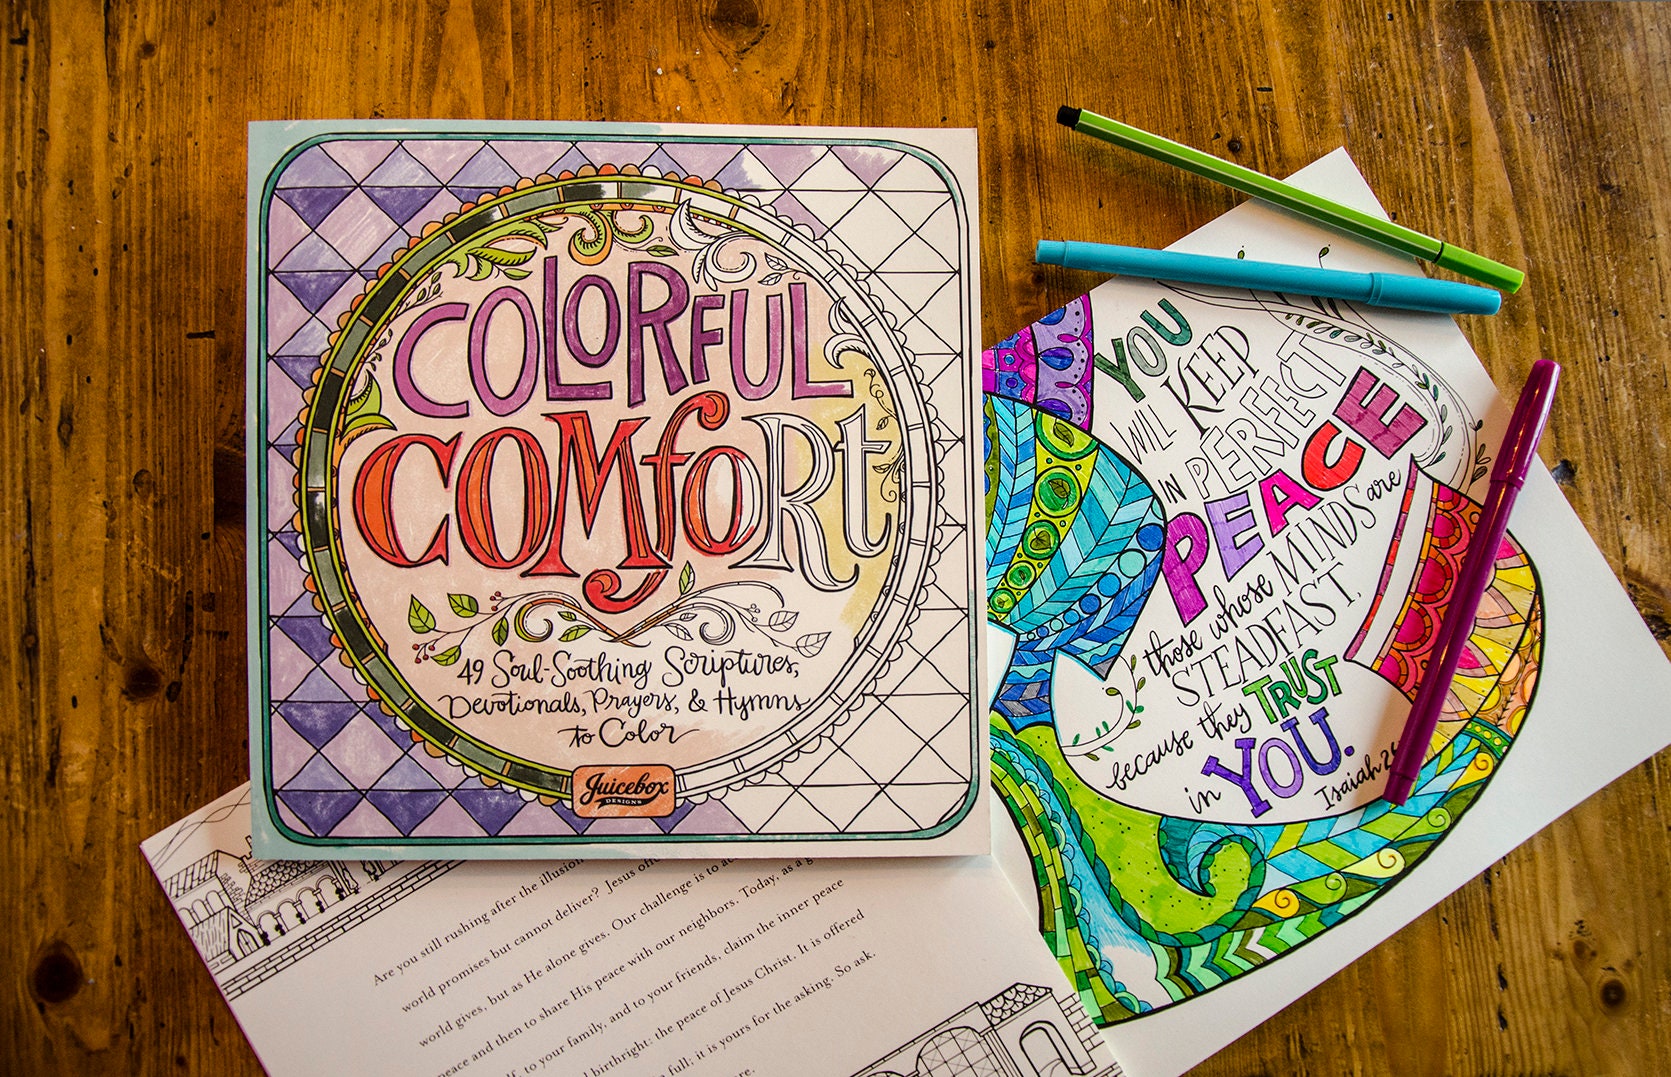 COLORFUL
COMfORt
49 Soul-Soothing Scriptures,
Devotionals, Prayers, & Hymns
to Color
Juicebox
DESIGNS
YOU
WILL KEEP
IN PERFECT
PEACE
those whose MINDS are
STEADFAST,
because they TRUST
in YOU.
Isaiah
Are you still rushing after the illusion
world promises but cannot deliver? Jesus
world gives, but as He alone gives. Our challenge is to
peace and then to share His peace with our neighbors. Today, as a
to your family, and to your friends, claim the inner peace
birthright: the peace of Jesus Christ. It is offered
full; it is yours for the asking. So ask.